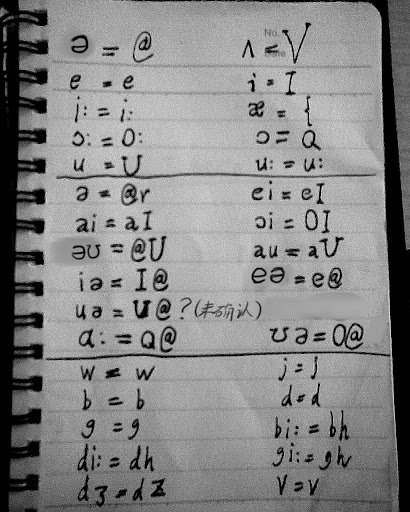 ə = @ ʌ = V
e = e i = I
i: = i: æ = {
ɔ: = O: ɔ = Q
u = U u: = u:
ə = @r ei = eI
ai = aI ɔi = OI
əʊ = @U au = aU
iə = I@ eə = e@
uə = U@ ? (未确认)
ɑ: = Q@ ʊə = O@
w = w j = j
b = b d = d
g = g bi: = bh
di: = dh gi: = gh
dʒ = dZ v = v